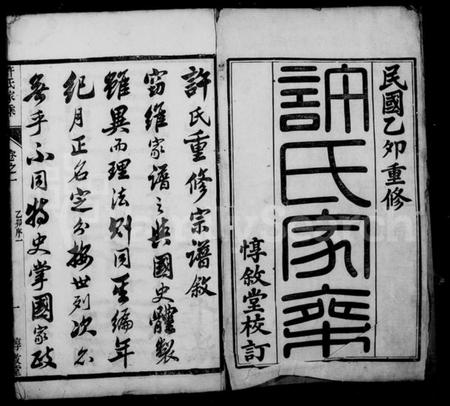 民國乙卯重修
許氏家乘
惇敘堂校訂
許氏重修宗譜敘
竊維家譜之與國史體製
雖異而理法則同至編年
紀月正名定分按世列次亦
無乎不同特史掌國家政
許氏家乘
卷之一
乙卯序一
惇敘堂